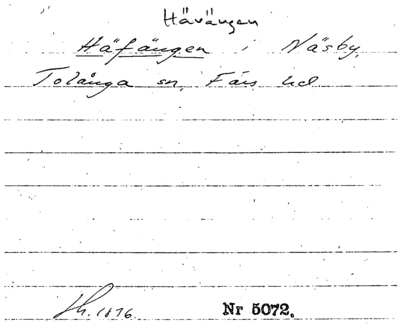 Hävängen
Häfängen i Näsby,
Tolånga sn, Färs hd
1876. Nr 5072.